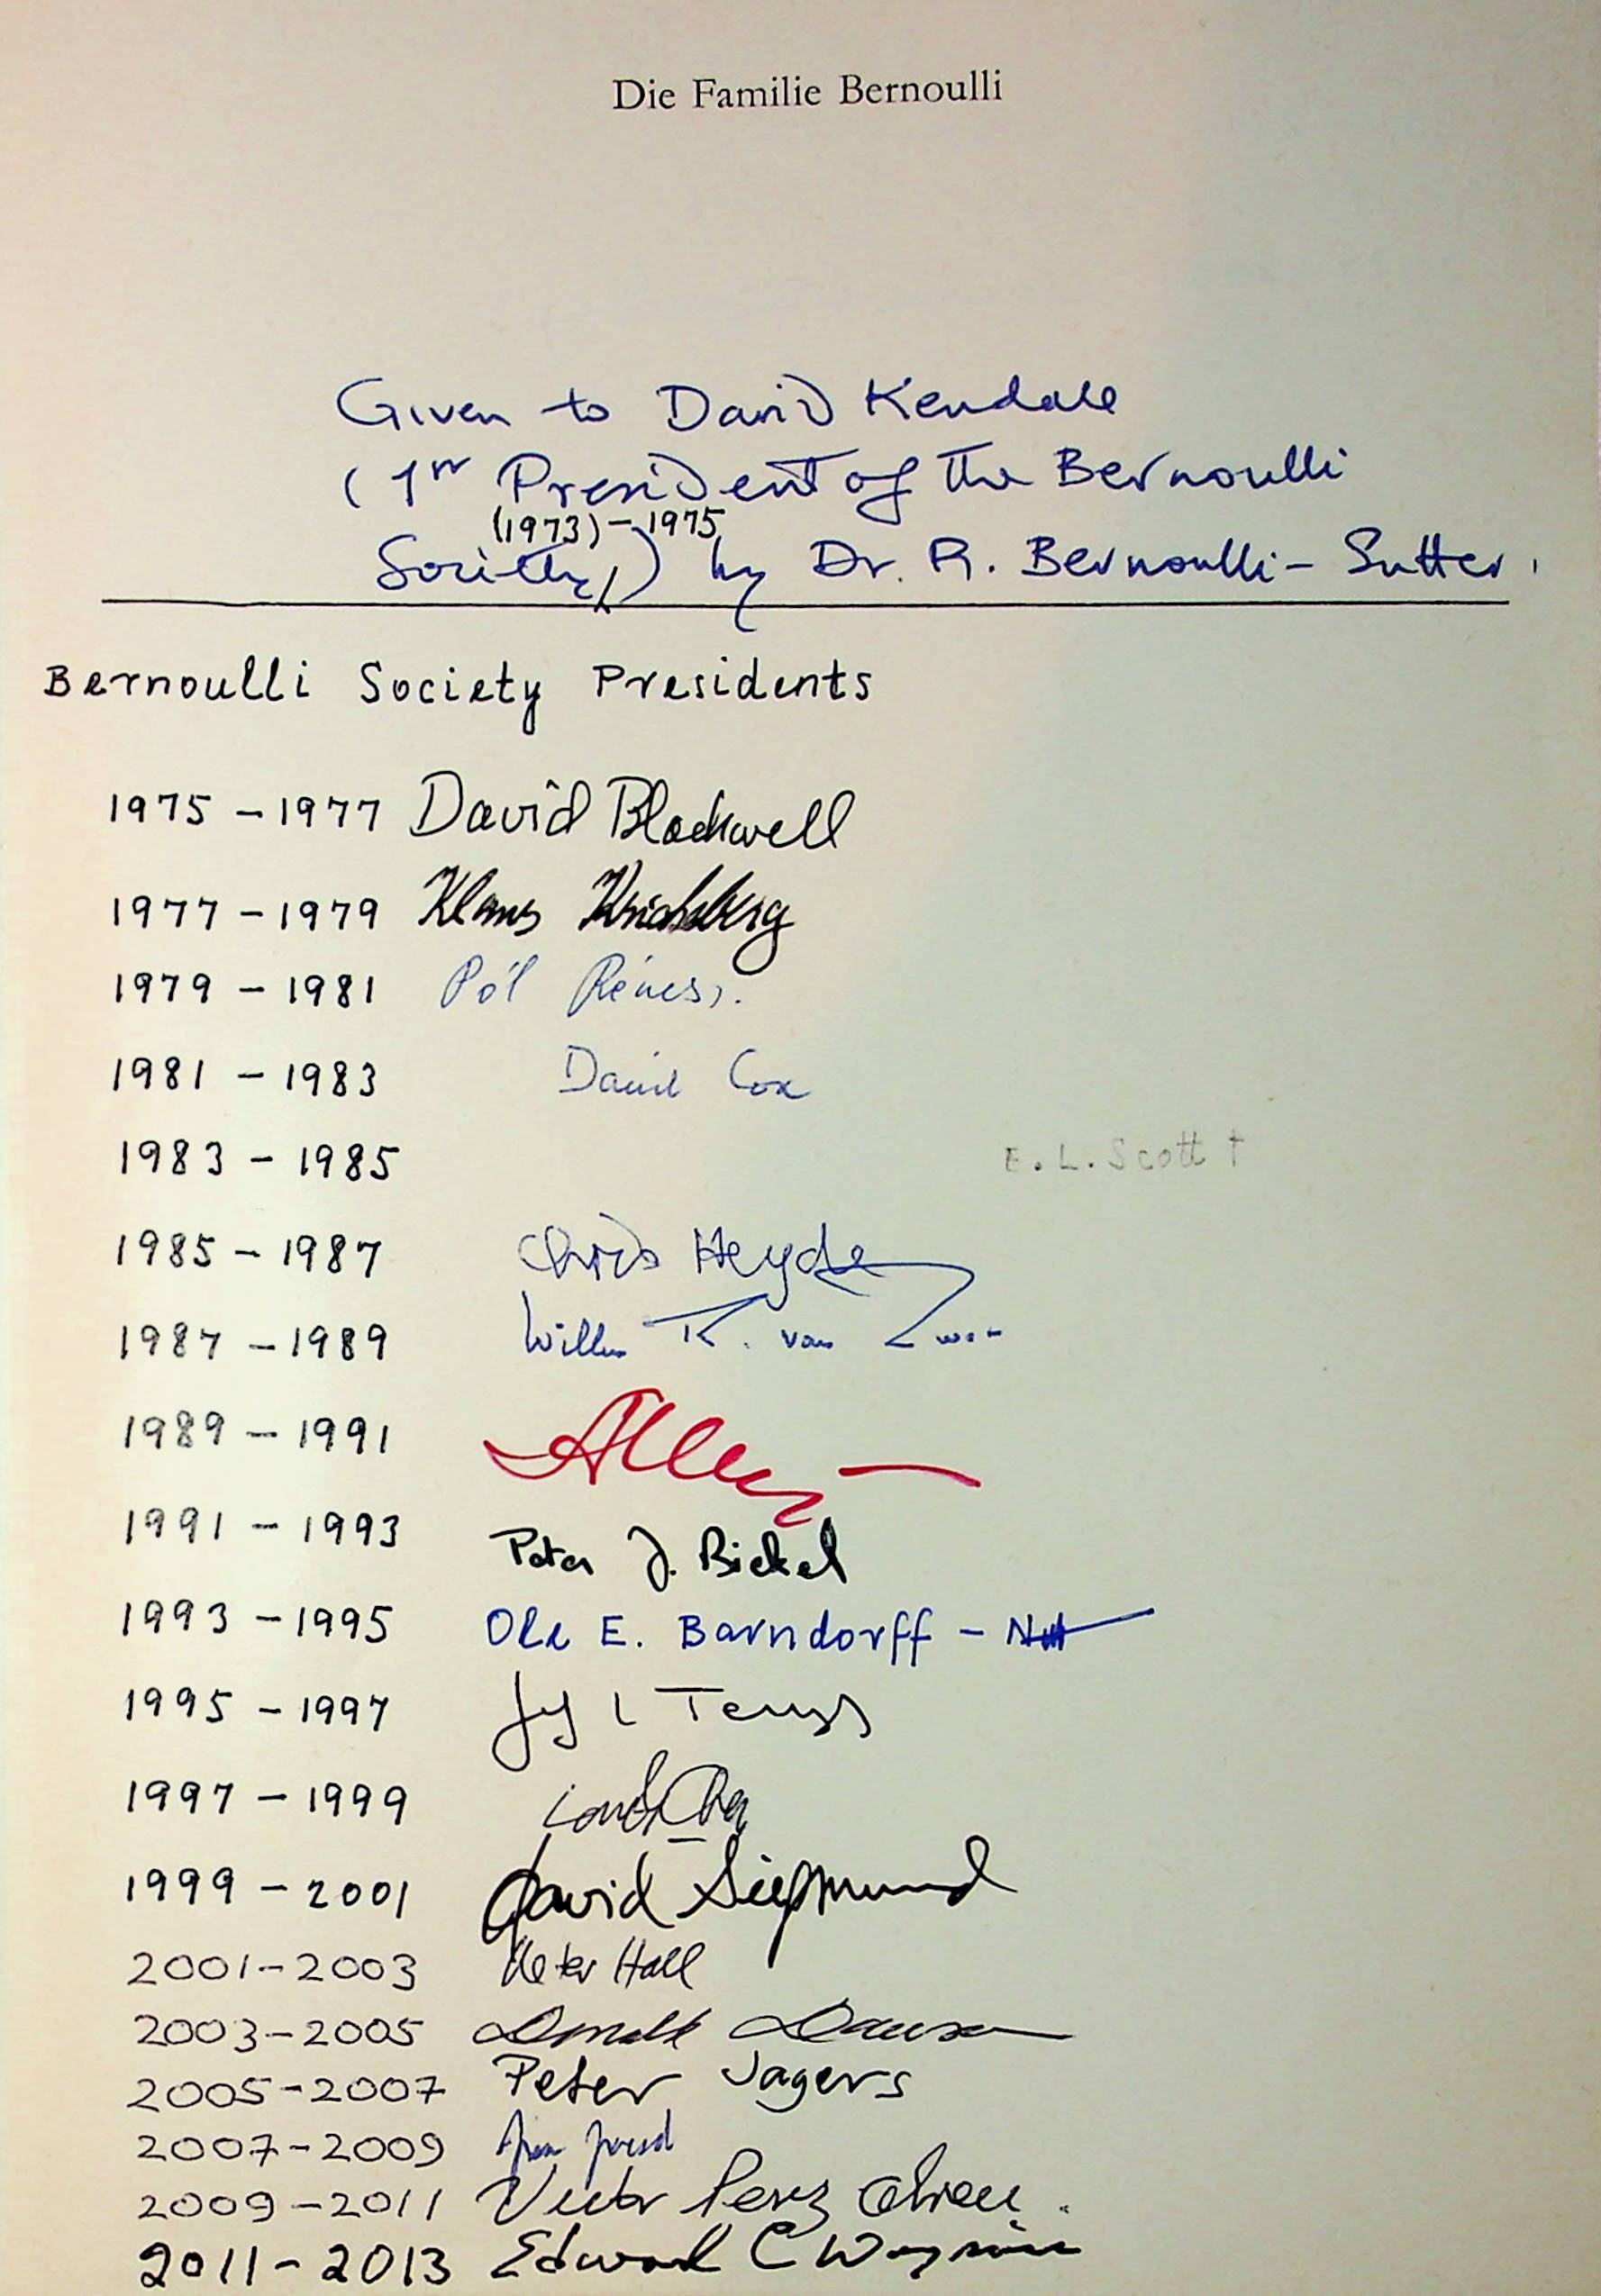 Die Familie Bernoulli
Given to David Kendall
(1st President of the Bernoulli
(1973) - 1975
Society,) by Dr. R. Bernoulli - Sutter.
Bernoulli Society Presidents
1975 - 1977 David Blackwell
1977 - 1979 Klaus Krickeberg
1979 - 1981 Pál Révész.
1981 - 1983 David Cox
1983 - 1985 E. L. Scott †
1985 - 1987 Chris Heyde
1987 - 1989 Willem R. van Zwet
1989 - 1991
1991 - 1993 Peter J. Bickel
1993 - 1995 Ole E. Barndorff -
1995 - 1997 L Teugels
1997 - 1999
1999 - 2001 David Siegmund
2001 - 2003 Peter Hall
2003 - 2005 Donald Dawson
2005 - 2007 Peter Jagers
2007 - 2009 Jean Jacod
2009 - 2011 Victor Perez Abreu.
2011 - 2013 Edward C Waymire